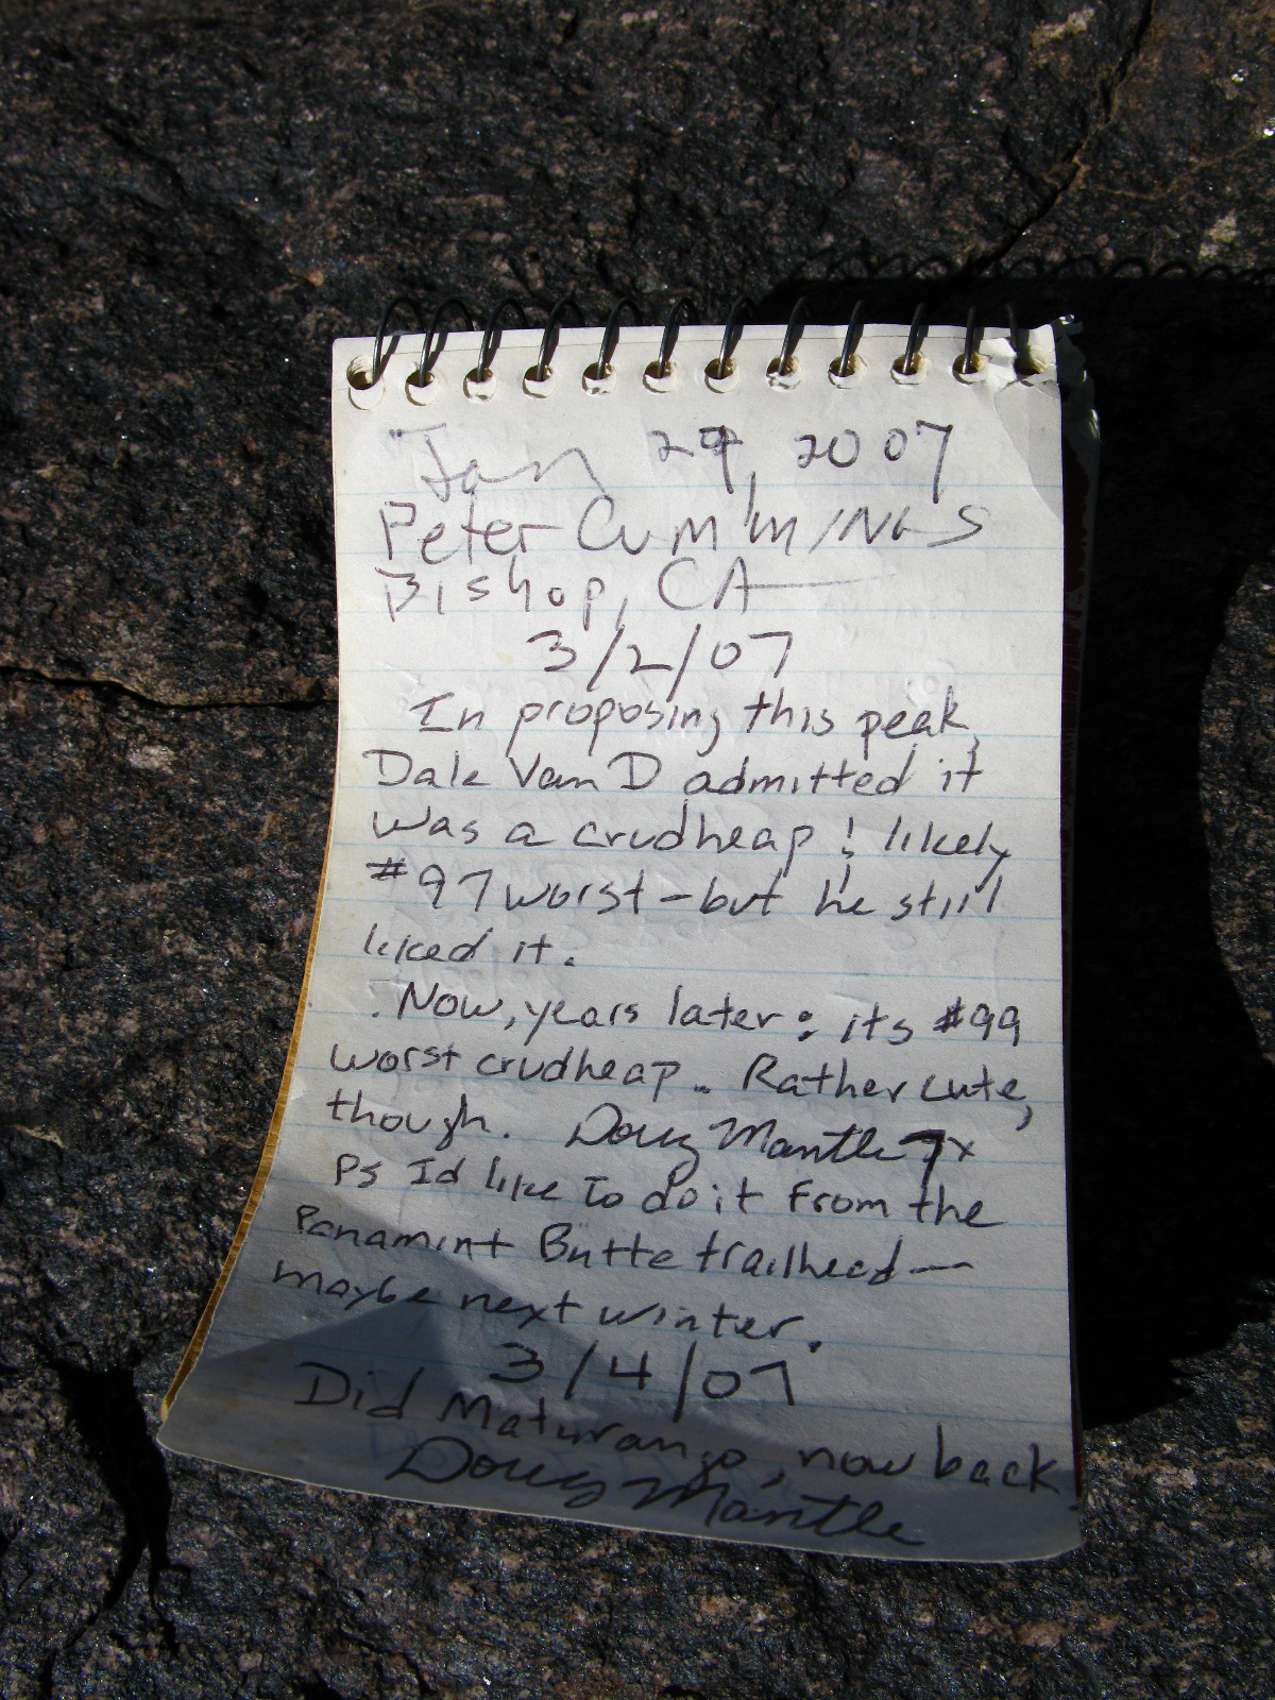 Jan 29, 2007
Peter CummINGS
Bishop, CA
3/2/07
In proposing this peak,
Dale Van D admitted it
was a crudheap; likely
#97 worst - but he still
liked it.
Now, years later: its #99
worst crudheap.. Rather cute,
though. Doug Mantle 7x
PS Id like to do it from the
Panamint Butte trailhead—
maybe next winter.
3/4/07
Did Maturango, now back.
Doug Mantle